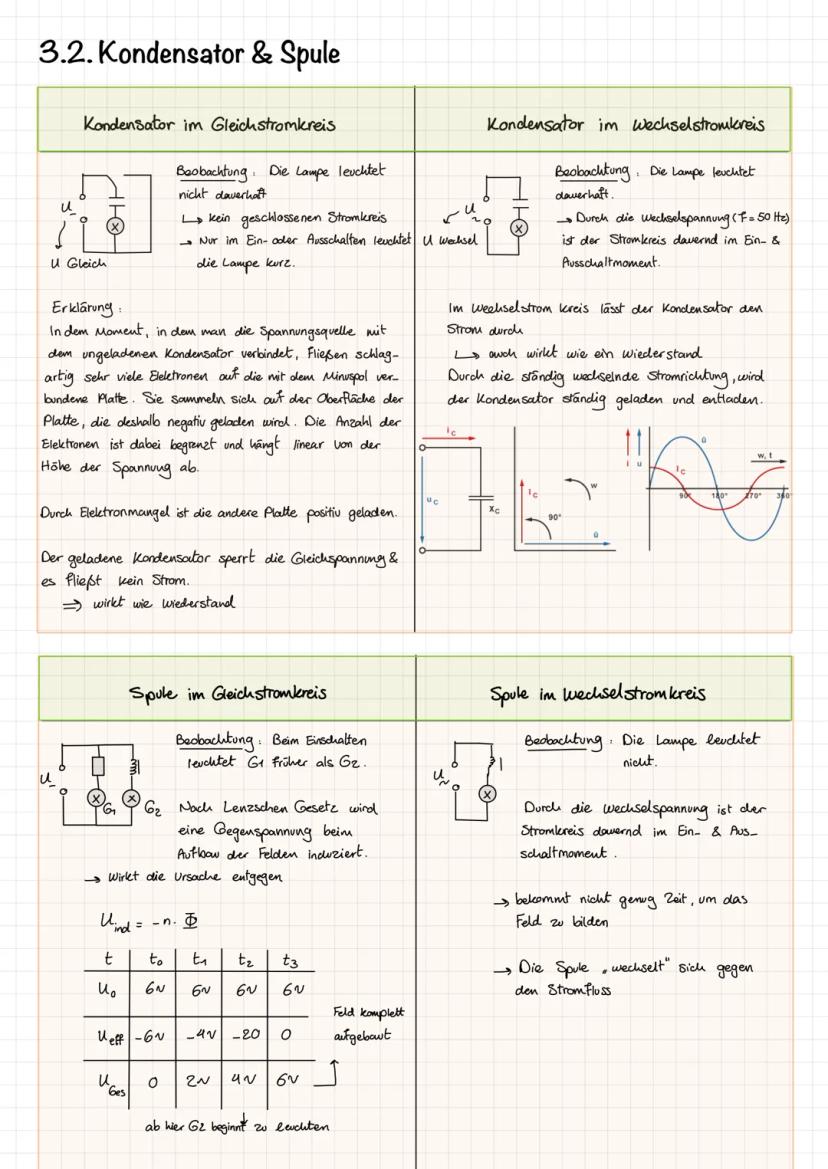 3.2. Kondensator & Spule
Kondensator im Gleichstromkreis
U
U Gleich
X
Beobachtung: Die Lampe leuchtet
nicht dauerhaft
↳ kein geschlossenen Stromkreis
→ Nur im Ein- oder Ausschalten leuchtet
die Lampe kurz.
Erklärung:
In dem Moment, in dem man die Spannungsquelle mit
dem ungeladenen Kondensator verbindet, Fließen schlag-
artig sehr viele Elektronen auf die mit dem Minuspol ver-
bundene Platte. Sie sammeln sich auf der Oberfläche der
Platte, die deshalb negativ geladen wird. Die Anzahl der
Elektronen ist dabei begrenzt und hängt linear von der
Höhe der Spannung ab.
Durch Elektronmangel ist die andere Platte positiv geladen.
Der geladene Kondensator sperrt die Gleichspannung &
es fließt kein Strom.
⇒ wirkt wie Wiederstand
Kondensator im Wechselstromkreis
U
~
U Wechsel
X
Beobachtung: Die Lampe leuchtet
dauerhaft.
→ Durch die Wechselspannung (F = 50 Hz)
ist der Stromkreis dauernd im Ein- &
Ausschaltmoment.
Im Wechselstrom kreis lässt der Kondensator den
Strom durch
↳ auch wirkt wie ein Wiederstand
Durch die ständig wechselnde Stromrichtung, wird
der Kondensator ständig geladen und entladen.
ic
uc
Xc
Ic
w
90°
û
i u
û
Ic
w, t
90° 180° 270° 360°
Spule im Gleichstromkreis
U
X G1
X G2
Beobachtung: Beim Einschalten
leuchtet G1 früher als G2.
Nach Lenzschen Gesetz wird
eine Gegenspannung beim
Aufbau der Felden induziert.
→ Wirkt die Ursache entgegen
Uind = -n. Φ
t t0 t1 t2 t3
U0 6V 6V 6V 6V
Ueff -6V -4V -20 0
UGes 0 2V 4V 6V
Feld komplett
aufgebaut
ab hier G2 beginnt zu leuchten
Spule im Wechselstromkreis
U
~
X
Beobachtung: Die Lampe leuchtet
nicht.
Durch die Wechselspannung ist der
Stromkreis dauernd im Ein- & Aus-
schaltmoment.
→ bekommt nicht genug Zeit, um das
Feld zu bilden
→ Die Spule „wechselt" sich gegen
den Stromfluss